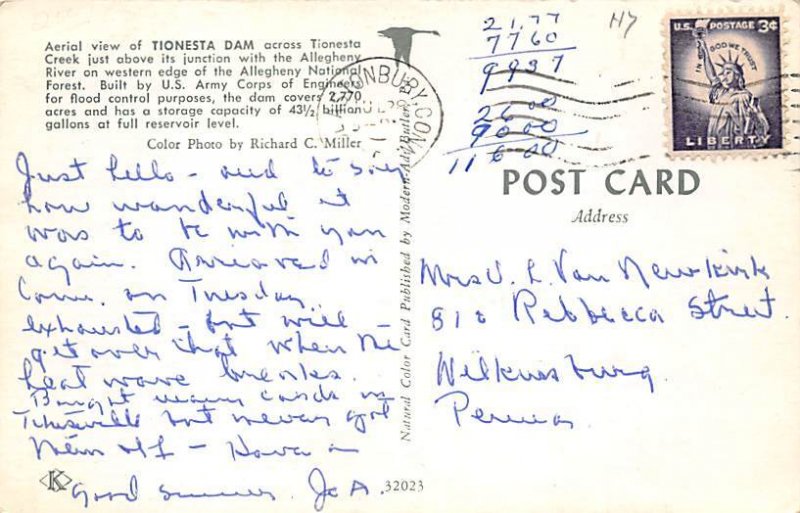 Aerial view of TIONESTA DAM across Tionesta
Creek just above its junction with the Allegheny
River on western edge of the Allegheny National
Forest. Built by U.S. Army Corps of Engineers
for flood control purposes, the dam covers 2,770
acres and has a storage capacity of 43½ billion
gallons at full reservoir level.
Color Photo by Richard C. Miller
Just hello - and to say
how wonderful it
was to be with you
again. Arrived in
Conn. on Tuesday,
exhausted - but will
get over that when the
heat wave breaks.
Bought many cards in
Titusville but never got
them off - Have a
good summer. Jo A.
K
32023
Natural Color Card Published by Modern-Ad, Butler, Pa.
21.77
7760
9937
26 00
90 00
116 00
U.S. POSTAGE 3¢
IN GOD WE TRUST
LIBERTY
CONN.
POST CARD
Address
Mrs J. L. Van Newkirk
810 Rebbecca Street.
Wilkinsburg
Penna